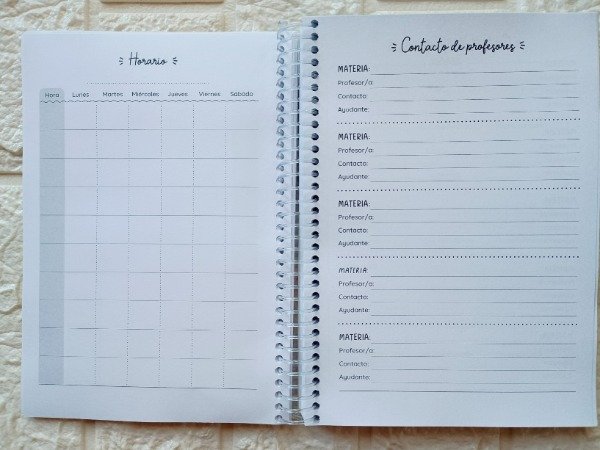 Horario
Hora Lunes Martes Miércoles Jueves Viernes Sábado
Contacto de profesores
MATERIA:
Profesor/a:
Contacto:
Ayudante:
MATERIA:
Profesor/a:
Contacto:
Ayudante:
MATERIA:
Profesor/a:
Contacto:
Ayudante:
MATERIA:
Profesor/a:
Contacto:
Ayudante:
MATERIA:
Profesor/a:
Contacto:
Ayudante: